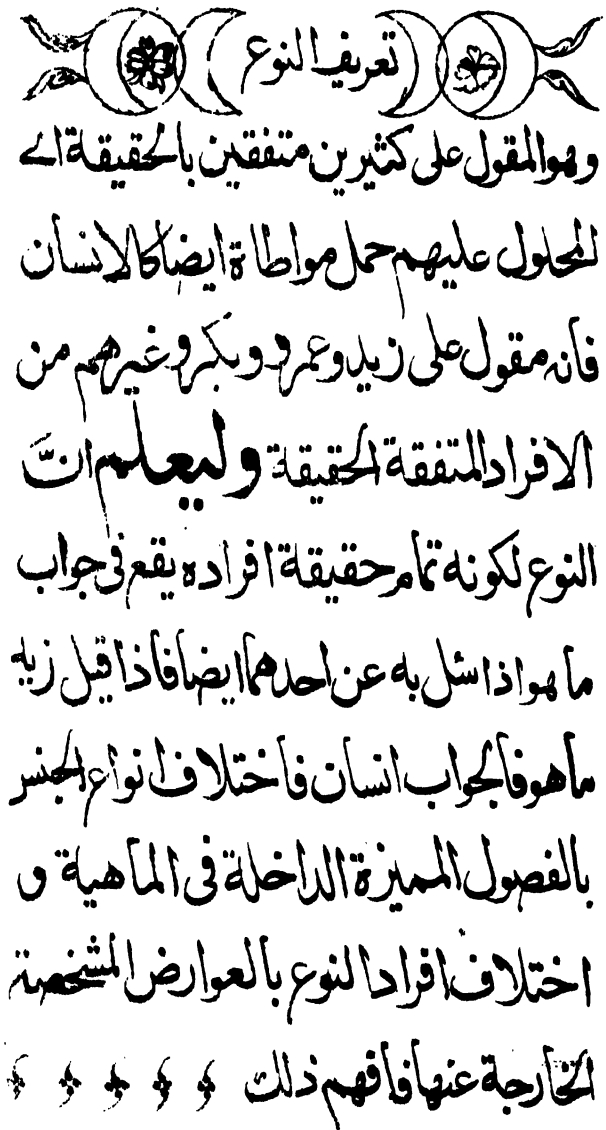 تعريف النوع
وهو المقول على كثيرين متفقين بالحقيقة اے
المحلول عليهم حمل مواطاة ايضا كالانسان
فانه مقول على زيد وعمرو وبكر وغيرهم من
الافراد المتفقة الحقيقة وليعلم انّ
النوع لكونه تمام حقيقة افراده يقع فى جواب
ما هو اذا سئل به عن احدهما ايضا فاذا قيل زيد
ما هو فالجواب انسان فاختلاف انواع الجنس
بالفصول المميزة الداخلة فى الماهية و
اختلاف افراد النوع بالعوارض المشخصة
الخارجة عنها فافهم ذلك